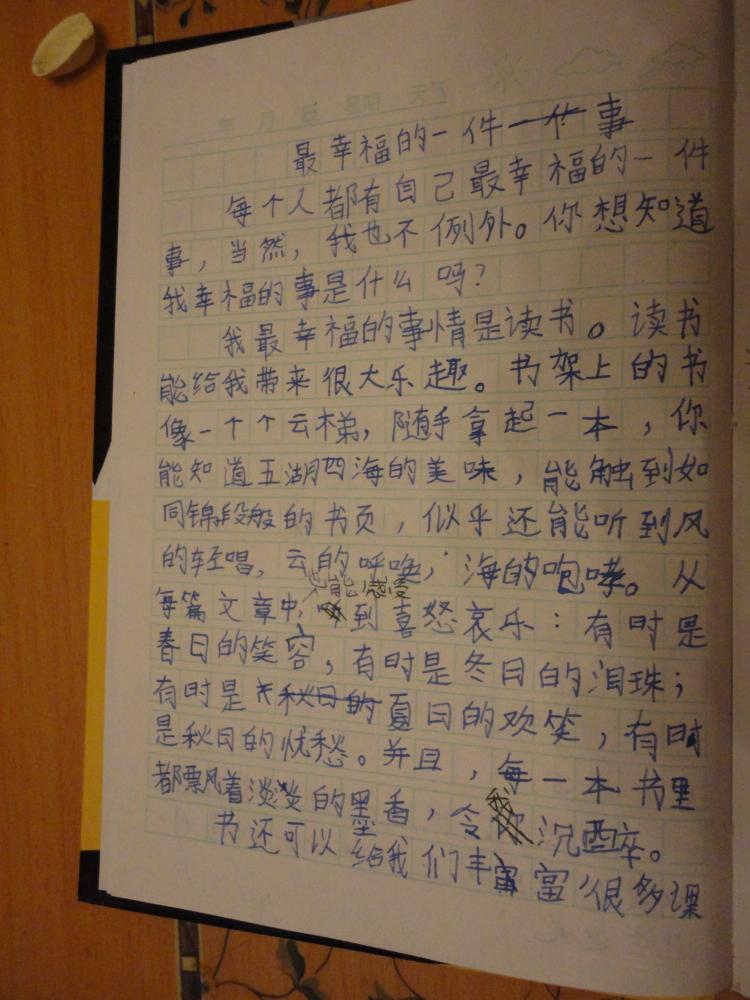 最幸福的一件事
每个人都有自己最幸福的一件
事，当然，我也不例外。你想知道
我幸福的事是什么吗？
我最幸福的事情是读书。读书
能给我带来很大乐趣。书架上的书
像一个个云梯，随手拿起一本，你
能知道五湖四海的美味，能触到如
同锦段般的书页，似乎还能听到风
的轻唱，云的呼唤，海的咆哮。从
每篇文章中，也能感受到喜怒哀乐：有时是
春日的笑容，有时是冬日的泪珠；
有时是夏日的欢笑，有时
是秋日的忧愁。并且，每一本书里
都飘着淡淡的墨香，令沉醉。
书还可以给我们丰富很多课